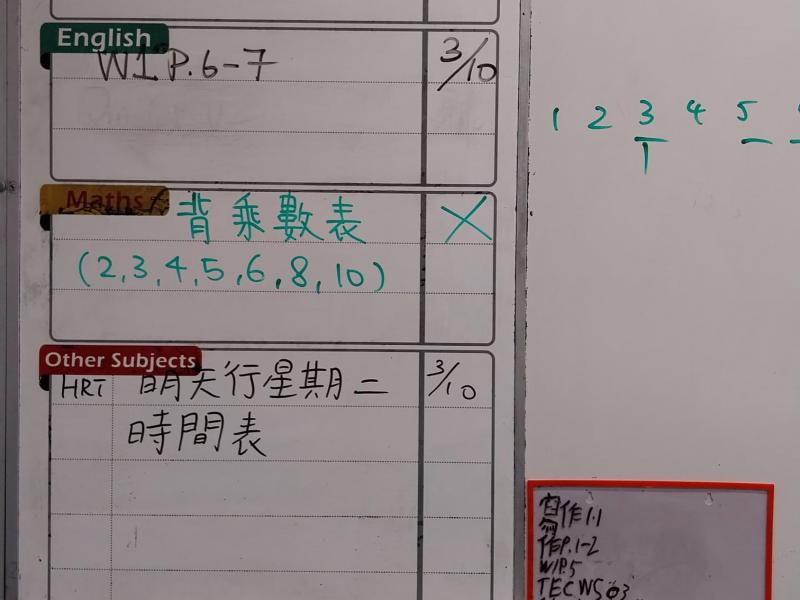 English
W1 P.6-7 3/10
Maths
背乘數表 X
(2,3,4,5,6,8,10)
Other Subjects
HRT 明天行星期二 3/10
時間表
1 2 3 4 5
作1.1
作P.1-2
W1P.5
TECWS 03